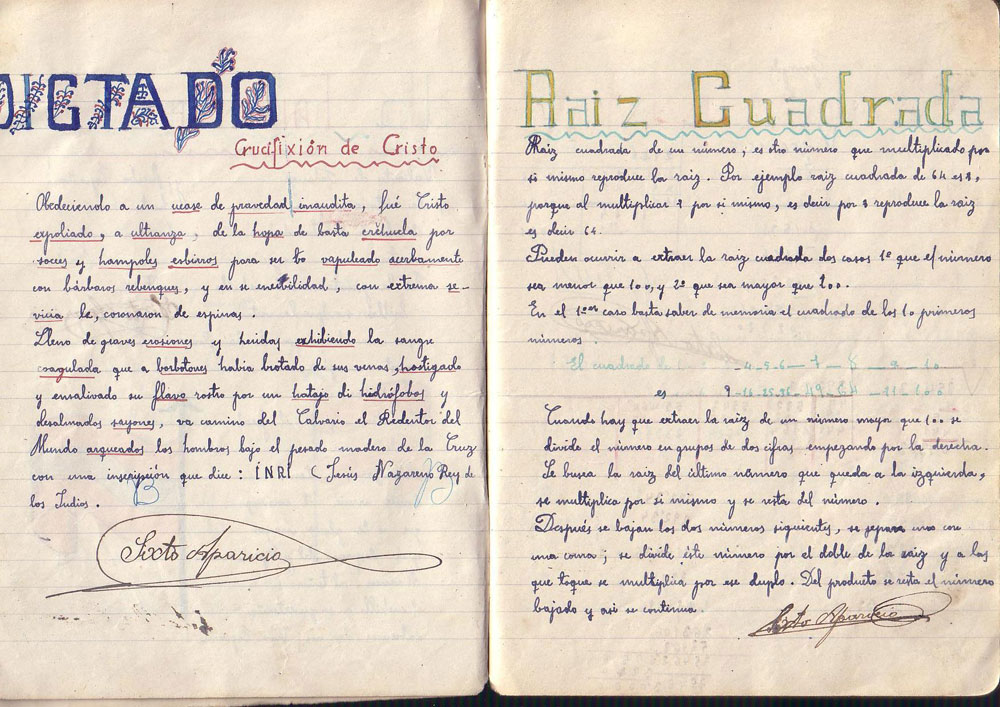 DICTADO
Crucifixión de Cristo
Obedeciendo a un ucase de pravedad inaudita, fué Cristo
expoliado, a ultranza, de la hopa de basta crehuela por
soeces y hampoles esbirros para ser vapuleado acerbamente
con bárbaros rebenques, y en se enebilidad, con extrema se-
vicia le, coronaron de espinas.
Lleno de graves erosiones y heridas exhibiendo la sangre
coagulada que a borbotones habia brotado de sus venas, hostigado
y ensalivado su flavo rostro por un hatajo di hidrófobos y
desalmados sayones, va camino del Calvario el Redentor del
Mundo arqueados los hombros bajo el pesado madero de la Cruz
con una inscripsión que dice: ÍNRI (Jesús Nazareno Rey de
los Judios.
B
Sixto Aparicio
Raiz Cuadrada
Raiz cuadrada de un número, es otro número que multiplicado por
si mismo reproduce la raiz. Por ejemplo raiz cuadrada de 64 es 8,
porque al multiplicar 8 por si mismo, es decir por 8 reproduce la raiz
es decir 64.
Pueden ocurrir a extraer la raiz cuadrada dos casos 1º que el número
sea menor que 100, y 2º que sea mayor que 100.
En el 1er caso basta saber de memoria el cuadrado de los 10 primeros
números.
El cuadrado de 4-5-6-7-8-9-10
es 9
Cuando hay que extraer la raiz de un número mayor que 100 se
divide el número en grupos de dos cifras empezando por la derecha.
Se busca la raiz del último número que queda a la izquienda,
se multiplica por si mismo y se resta del número.
Después se bajan los dos números siguientes, se separa uno con
una coma; se divide éste número por el doble de la raiz y a los
que toque se multiplica por ese duplo. Del producto se resta el número
bajado y asi se continua.
Sixto Aparicio